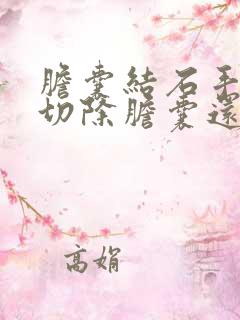 膽囊結石手
切除膽囊還
高娟